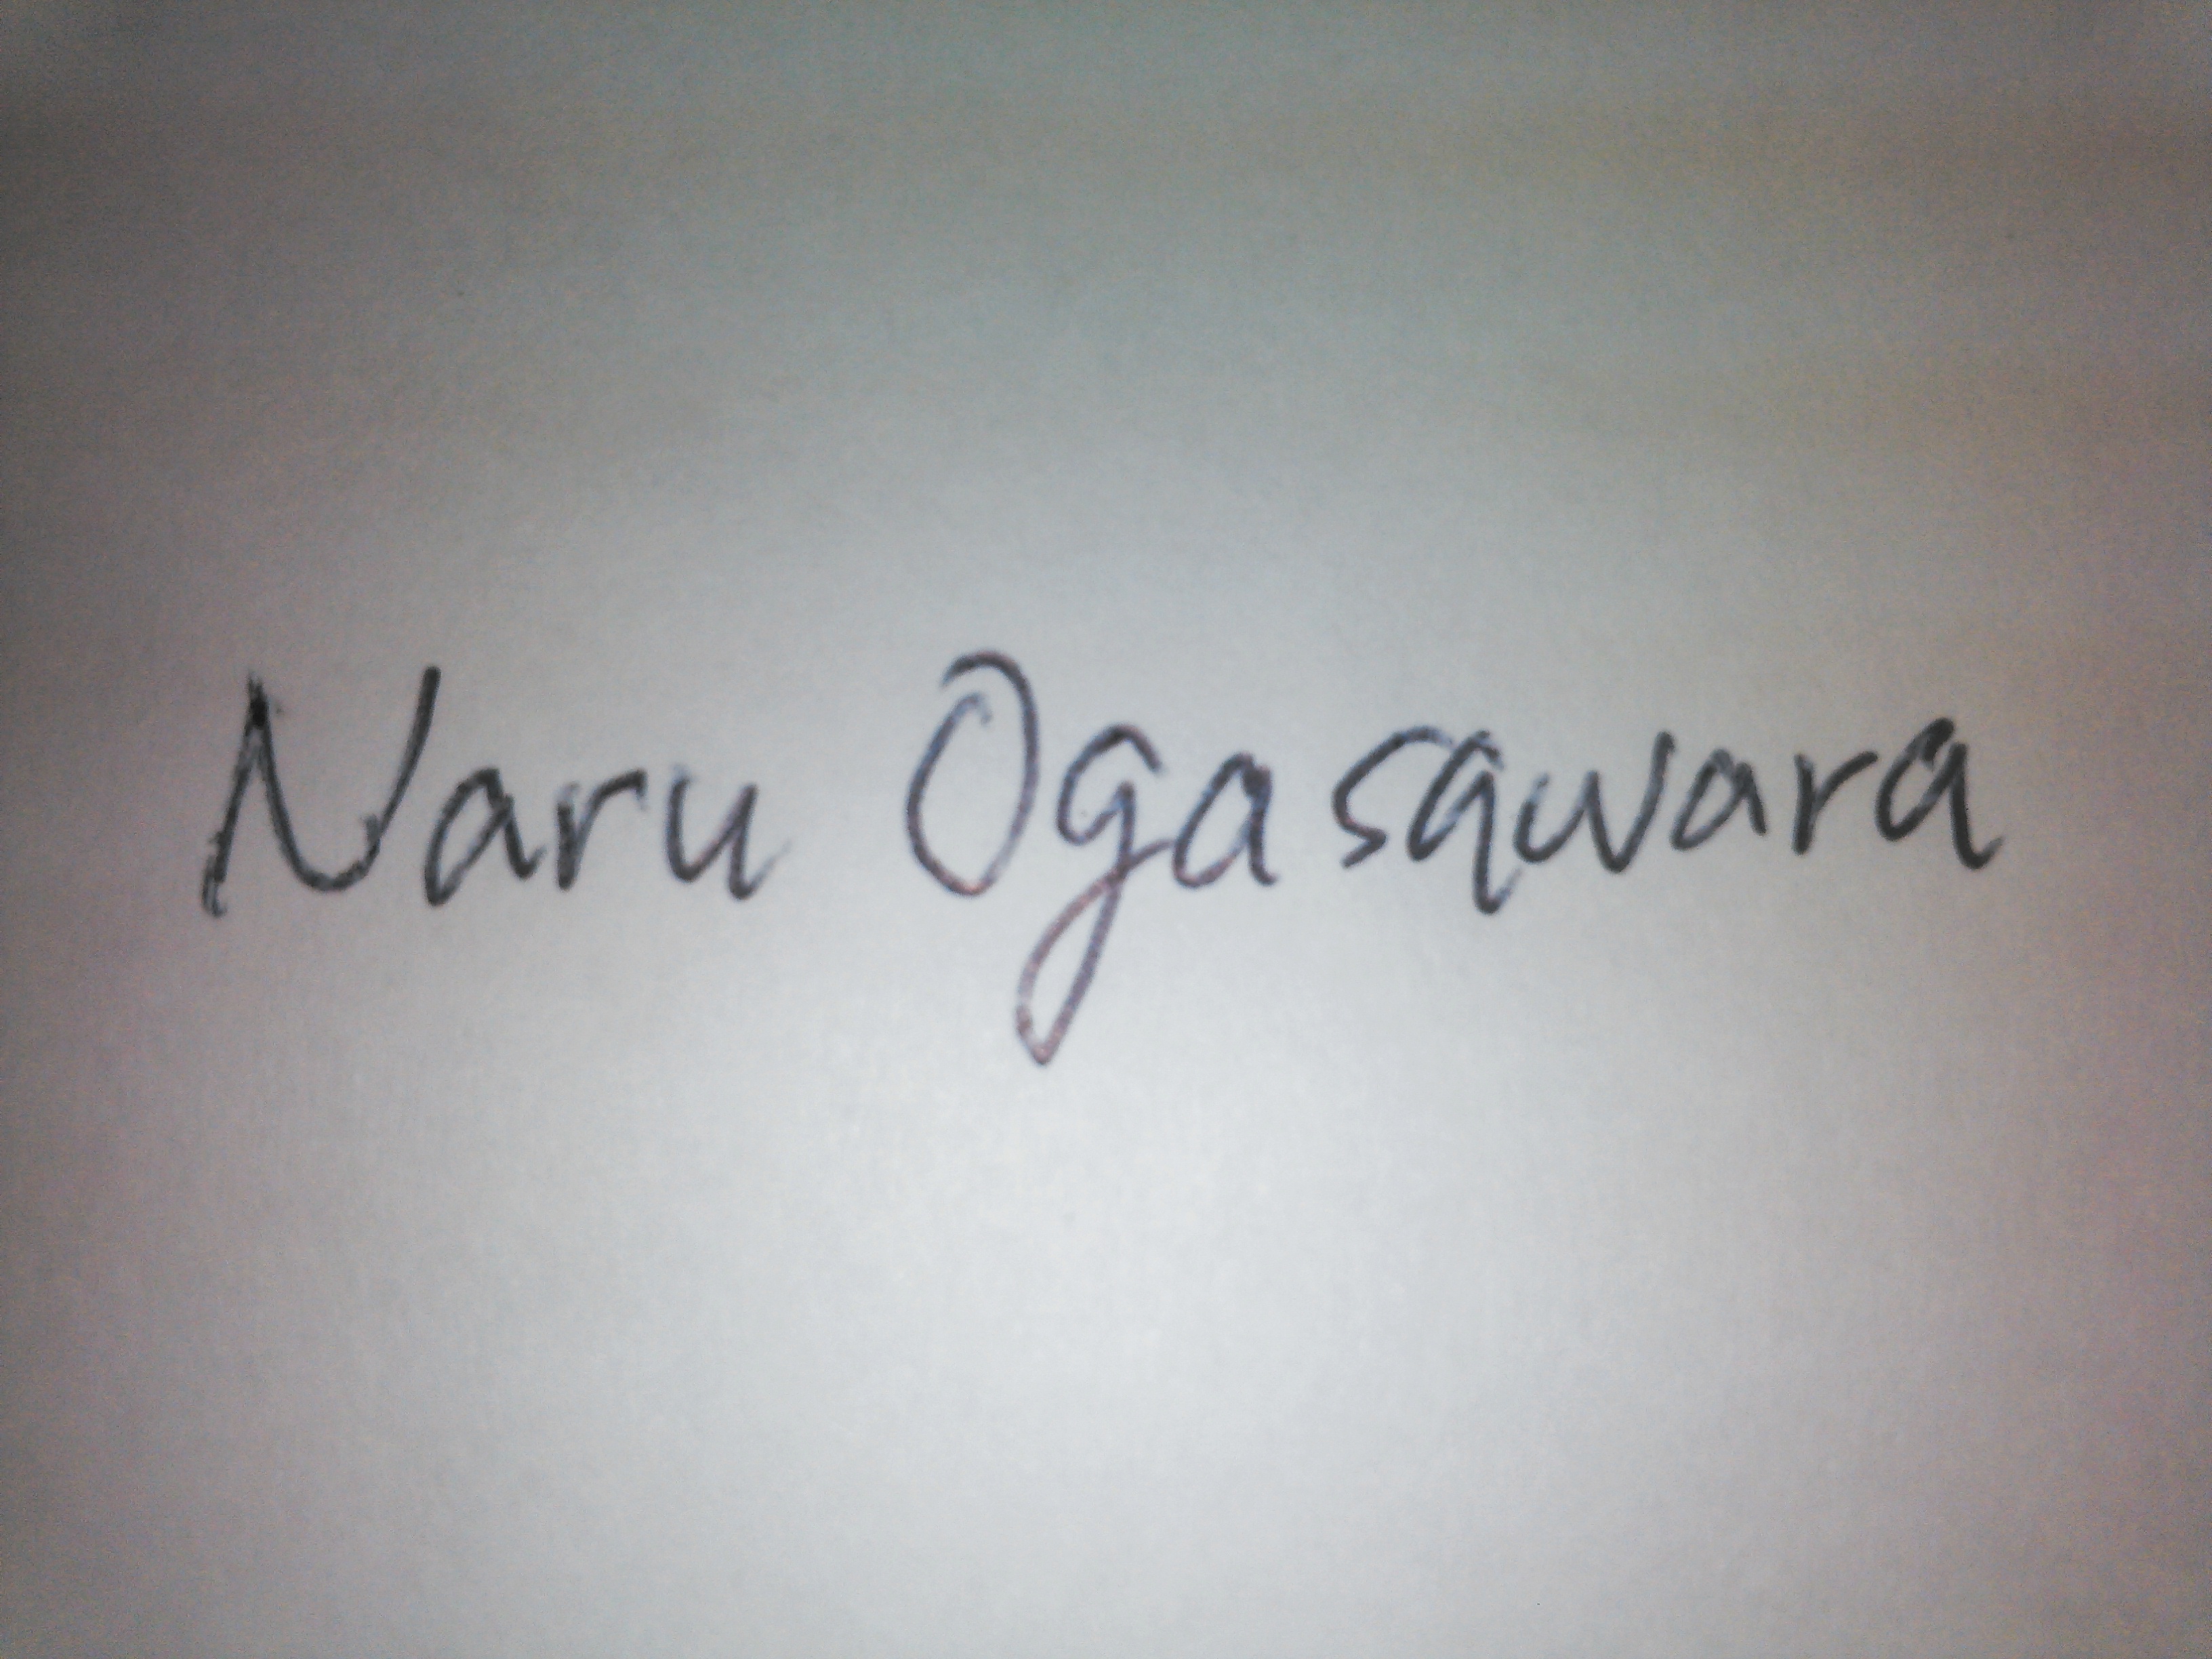 Naru Ogasawara